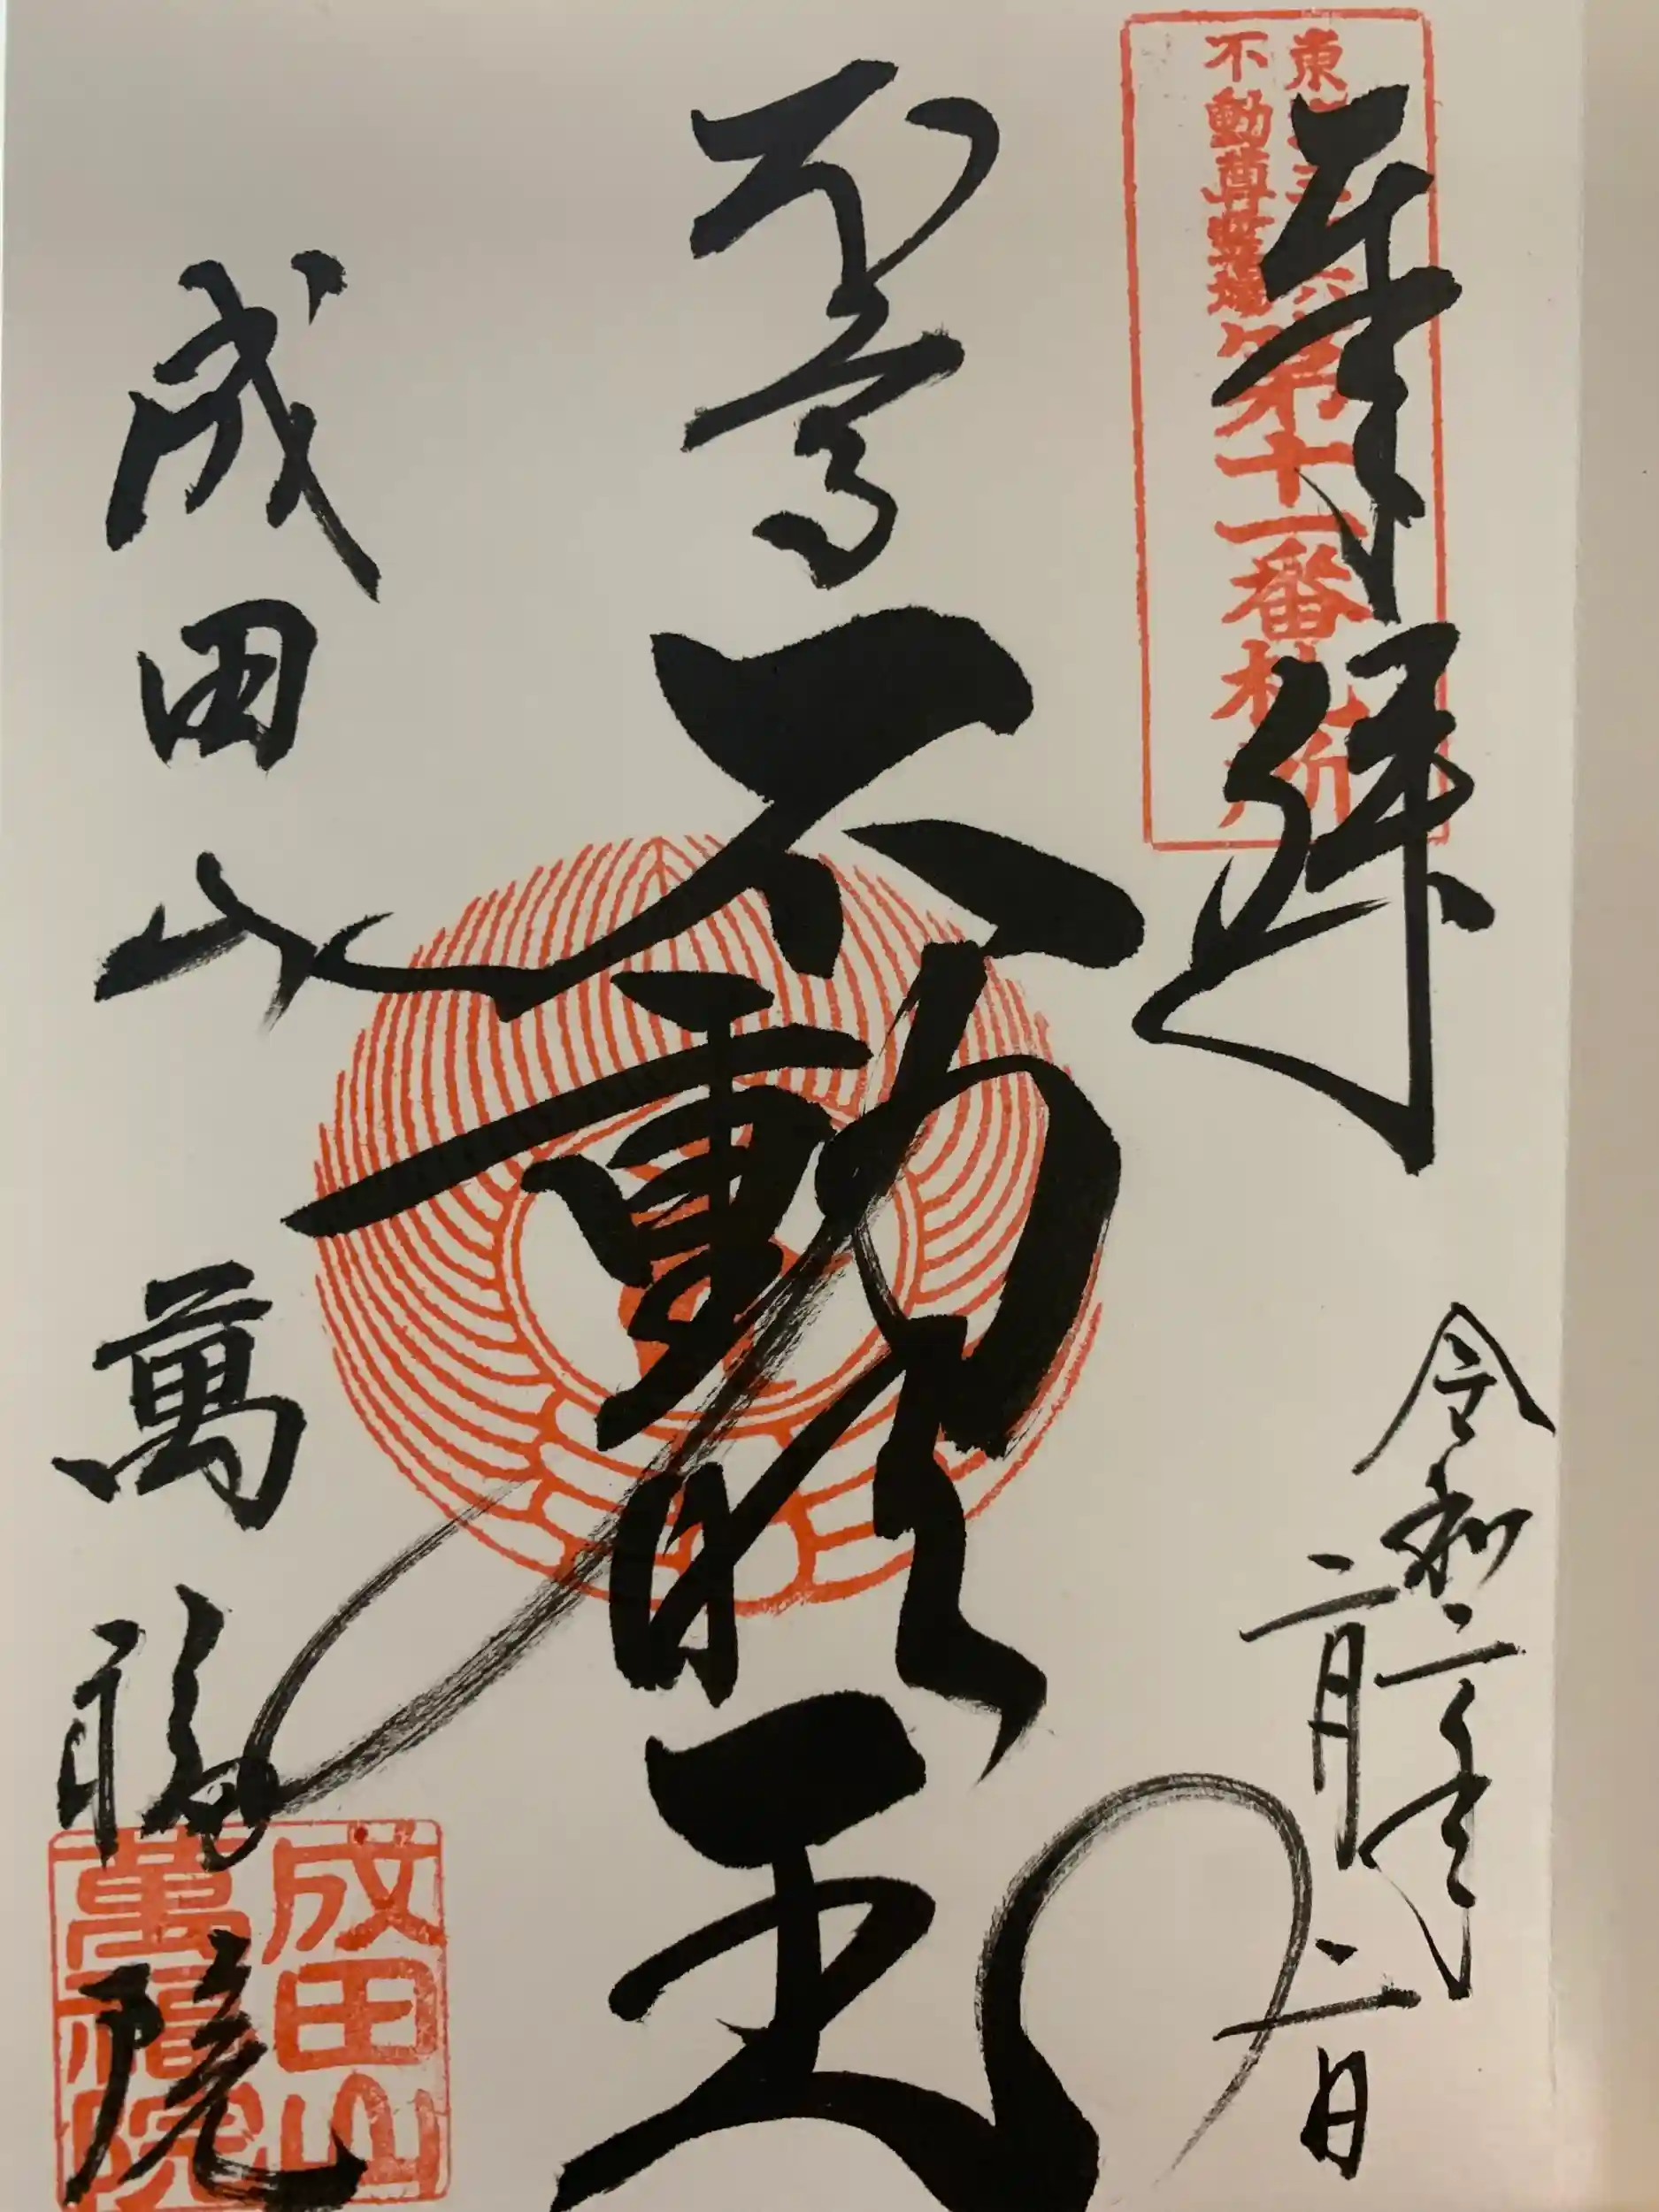 奉拝
東海三十六
不動尊霊場
第十一番札所
令和二年
二月二日
不動明王
成田山 萬福院
成田山
萬福院